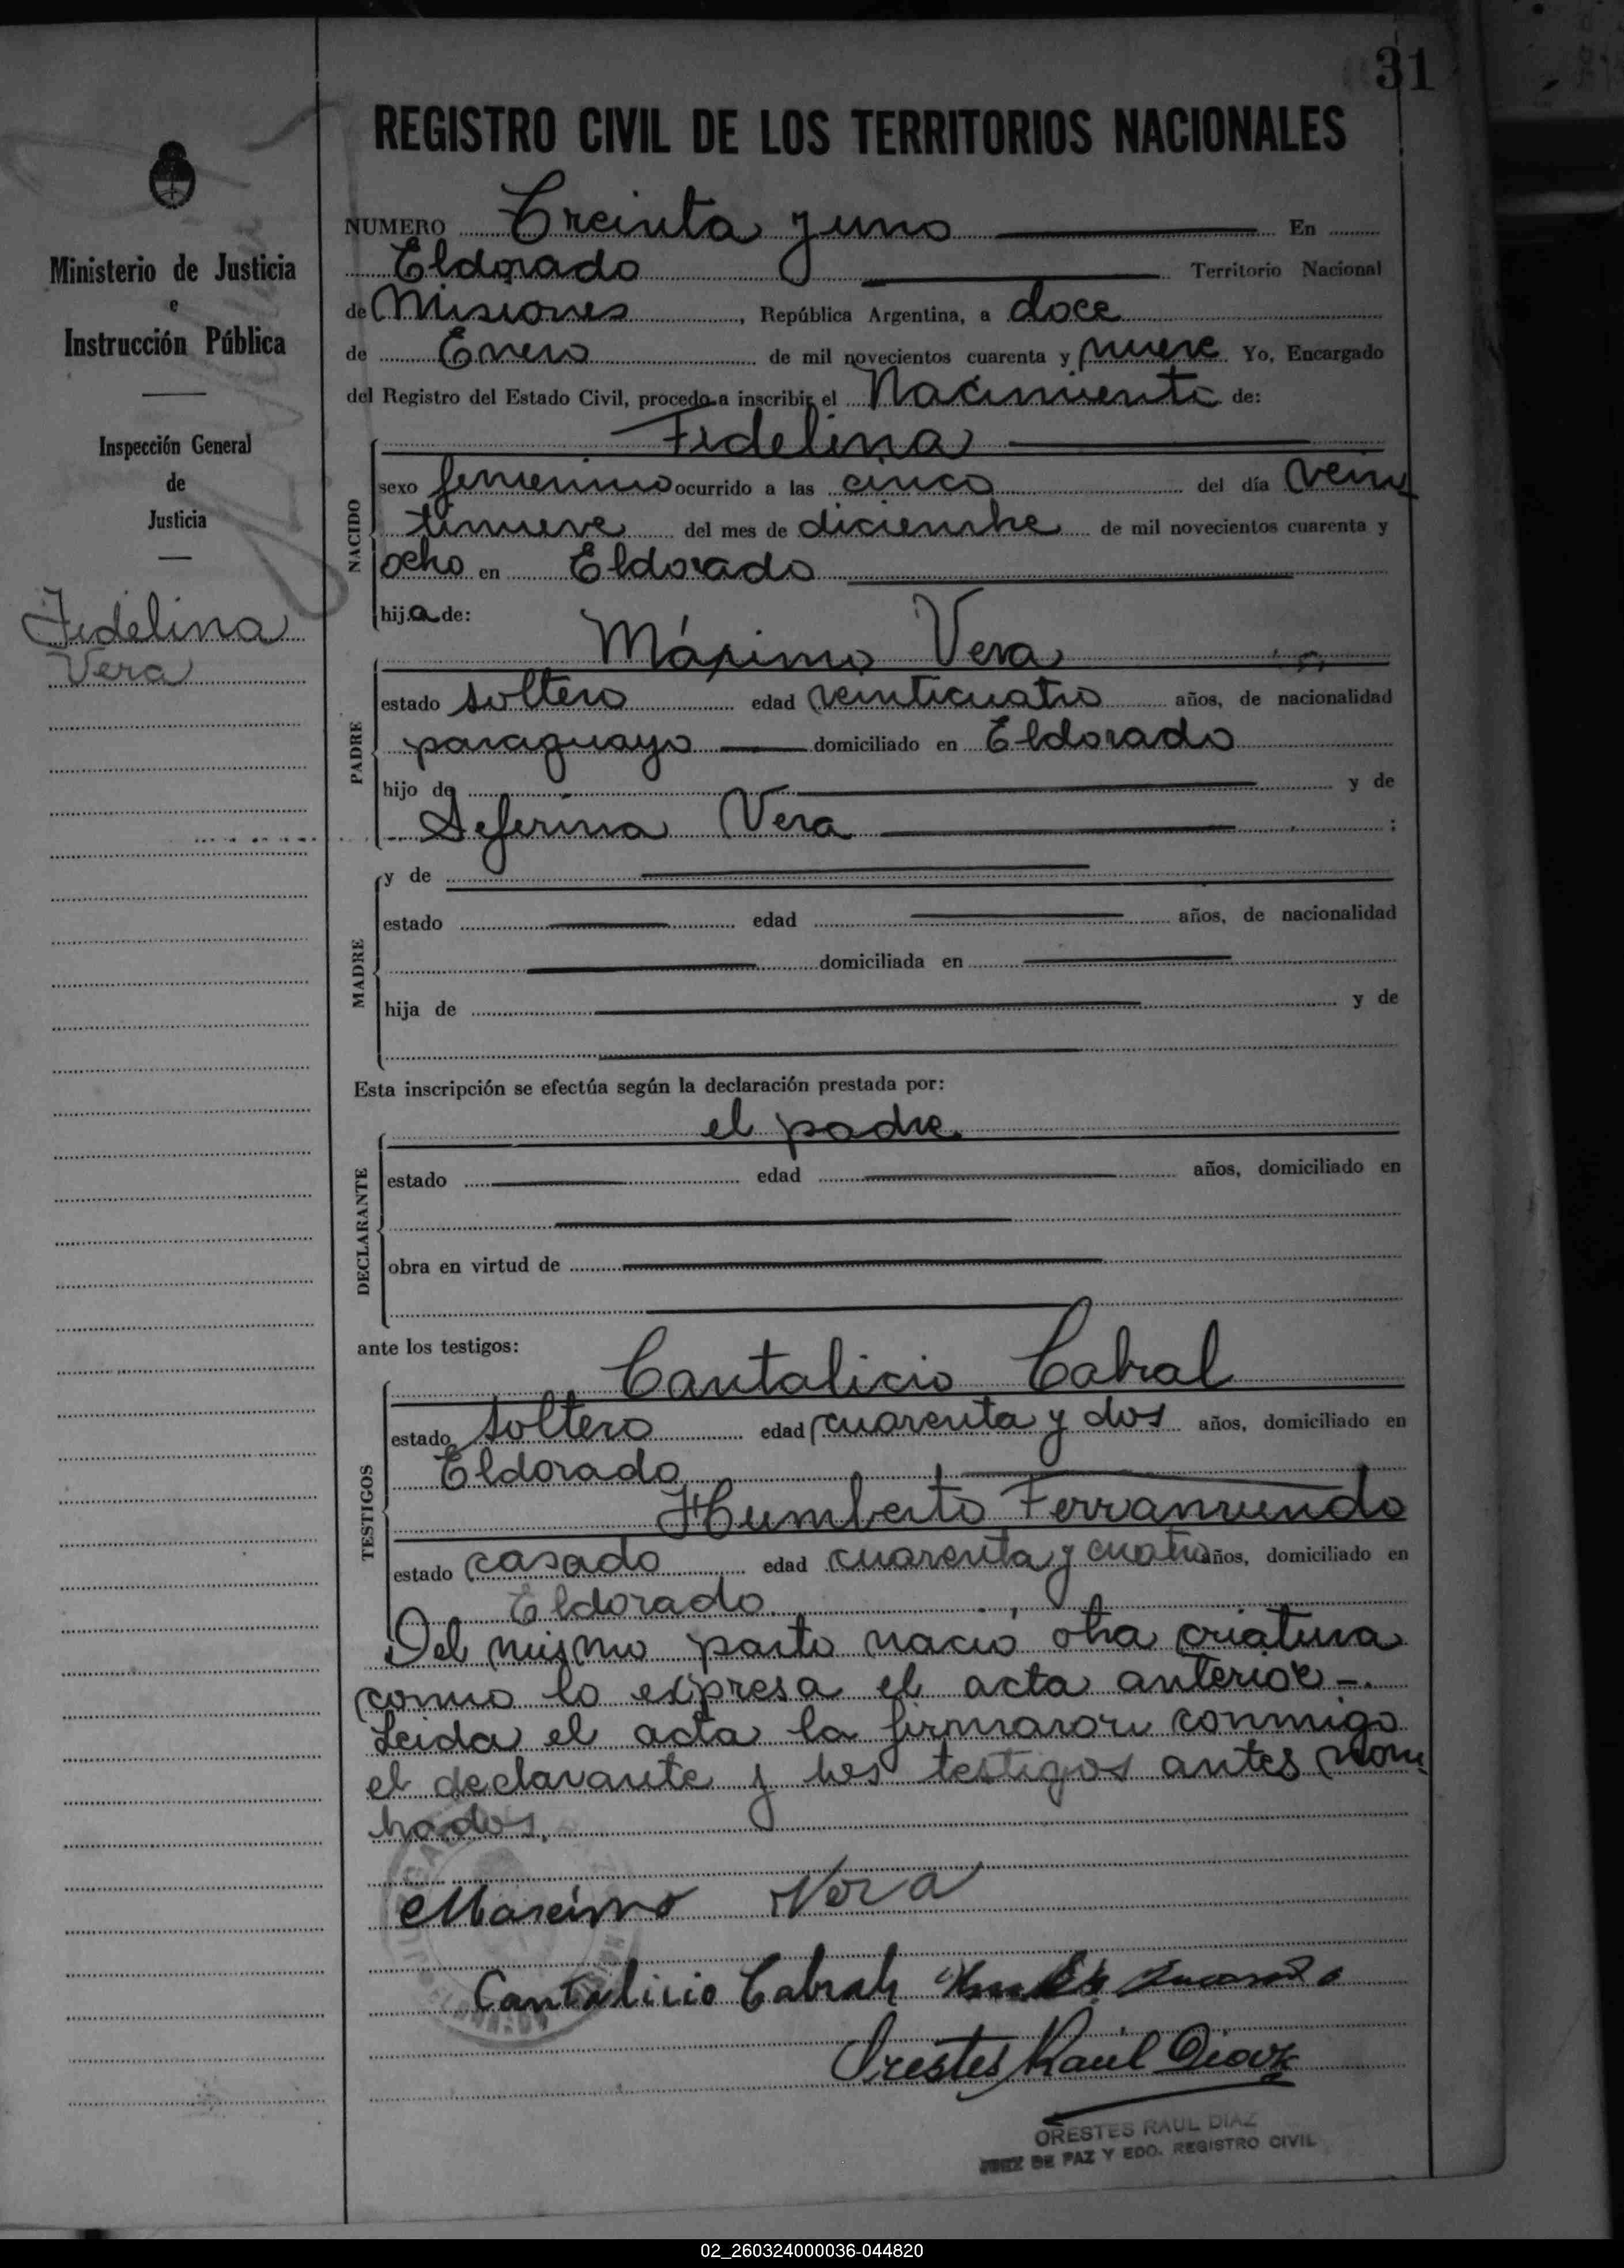 31
REGISTRO CIVIL DE LOS TERRITORIOS NACIONALES
Ministerio de Justicia
e
Instrucción Pública
Inspección General
de
Justicia
Fidelina
Vera
NUMERO Treinta y uno En
Eldorado Territorio Nacional
de Misiones, República Argentina, a doce
de Enero de mil novecientos cuarenta y nueve Yo, Encargado
del Registro del Estado Civil, procedo a inscribir el Nacimiento de:
NACIDO
Fidelina
sexo femenino ocurrido a las cinco del día vein
tinueve del mes de diciembre de mil novecientos cuarenta y
ocho en Eldorado
hija de:
PADRE
Máximo Vera
estado soltero edad veinticuatro años, de nacionalidad
paraguayo domiciliado en Eldorado
hijo de y de
Seferina Vera :
MADRE
y de
estado edad años, de nacionalidad
domiciliada en
hija de y de
Esta inscripción se efectúa según la declaración prestada por:
DECLARANTE
el padre
estado edad años, domiciliado en
obra en virtud de
ante los testigos:
TESTIGOS
Cantalicio Cabral
estado soltero edad cuarenta y dos años, domiciliado en
Eldorado
Humberto Ferramundo
estado casado edad cuarenta y cuatro años, domiciliado en
Eldorado
Del mismo parto nacio otra criatura
como lo expresa el acta anterior -.
Leida el acta la firmaron conmigo
el declarante y los testigos antes nom
brados.
Maximo Vera
Cantalicio Cabral
Orestes Raúl Diaz
ORESTES RAUL DIAZ
JUEZ DE PAZ Y EDO. REGISTRO CIVIL
02_260324000036-044820